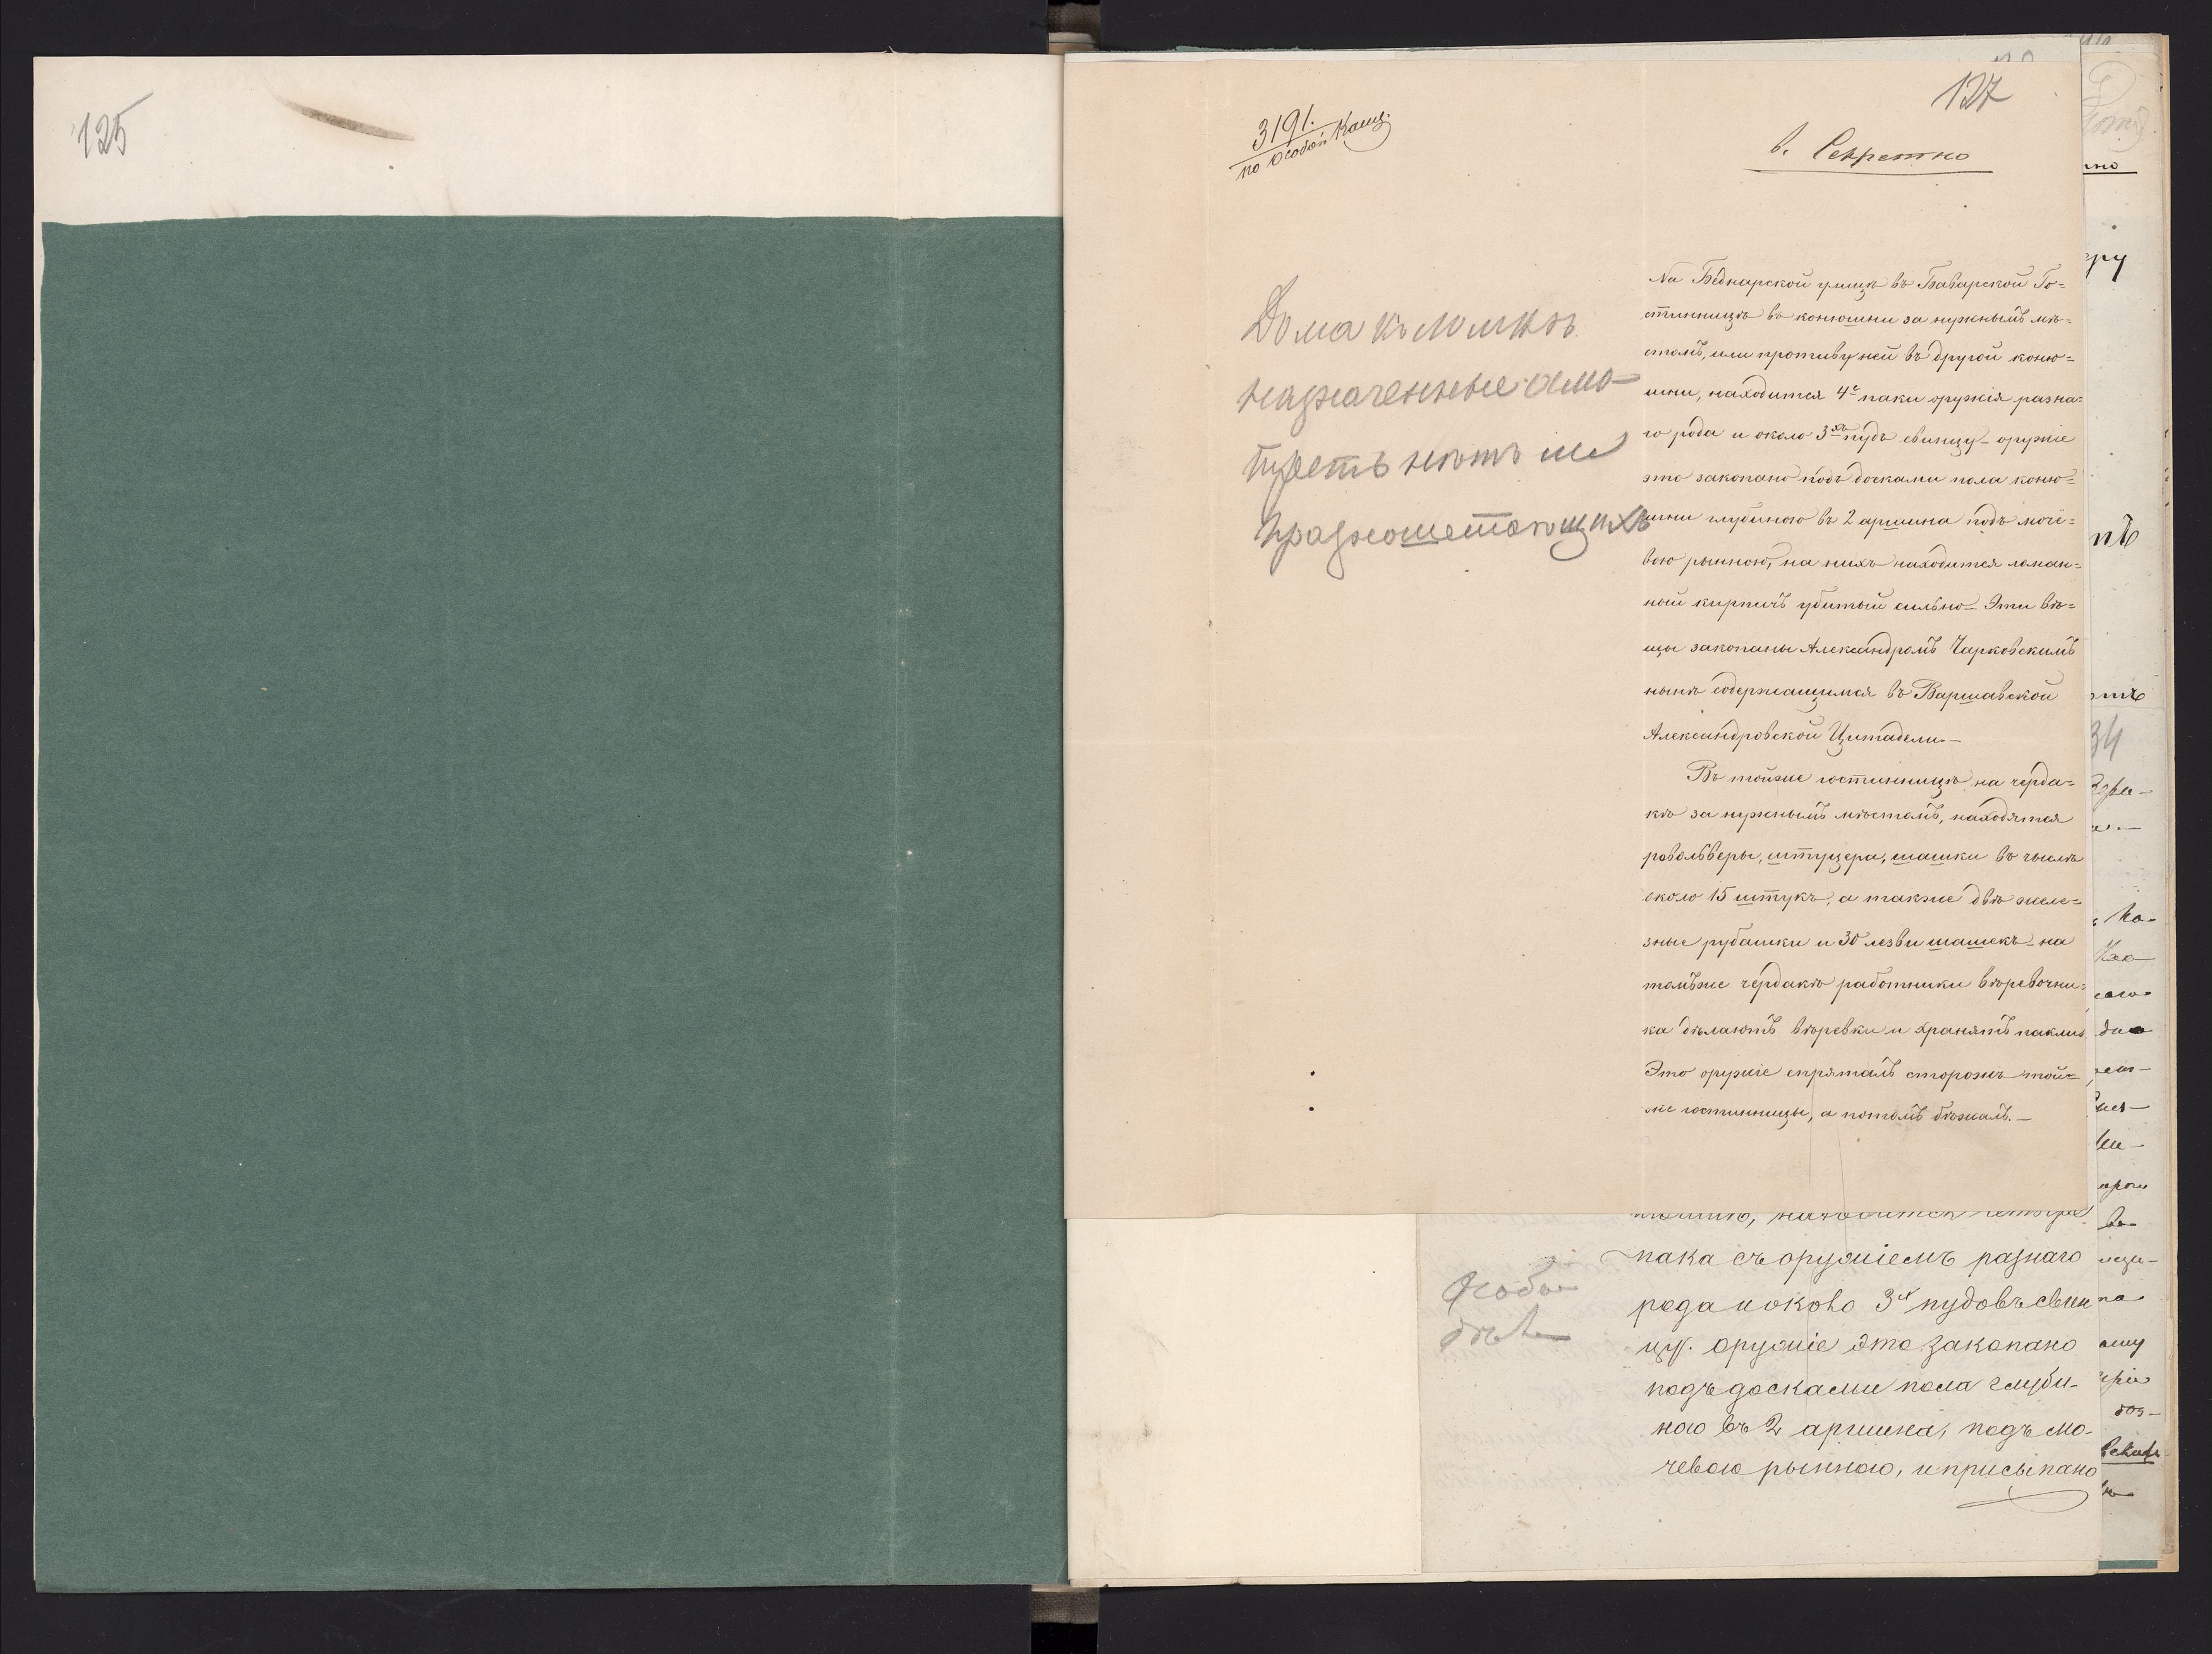 125
127
3191.
по Особой Канц.
в. Секретно
На Беднарской улицѣ въ Баварской Го=
стинницѣ въ конюшни за нужнымъ мѣ=
стомъ, или противу ней въ другой коню=
шни, находится 4е паки оружія разна=
го рода и около 3хъ пудъ свинцу – оружіе
это закопано подъ досками пола коню=
шни глубиною въ 2 аршина подъ моче=
вою рынною, на нихъ находится ломан=
ный кирпичъ убитый сильно – Эти вѣ=
щи закопаны Александромъ Чарковскимъ
нынѣ содержащимся въ Варшавской
Александровской Цитадели. –
Въ тойже гостинницѣ на черда=
кѣ за нужнымъ мѣстомъ, находятся
револьверы, штуцера, шашки въ числѣ
около 15 штукъ, а также двѣ желе=
зные рубашки и 30 лезви шашекъ – на
томъже чердакѣ работники вѣревочни=
ка дѣлаютъ вѣревки и хранятъ паклю
Это оружіе спряталъ сторожъ той=
же гостинницы, а потомъ бѣжалъ. –
Дома къ
назначенные осмо-
трѣть нѣтъ ли
пака съ оружіемъ разнаго
рода и около 3х пудовъ свин
цу. Оружіе это закопано
подъ досками пола глуби-
ною въ 2 аршина, подъ мо-
чевою рынною, и присыпано